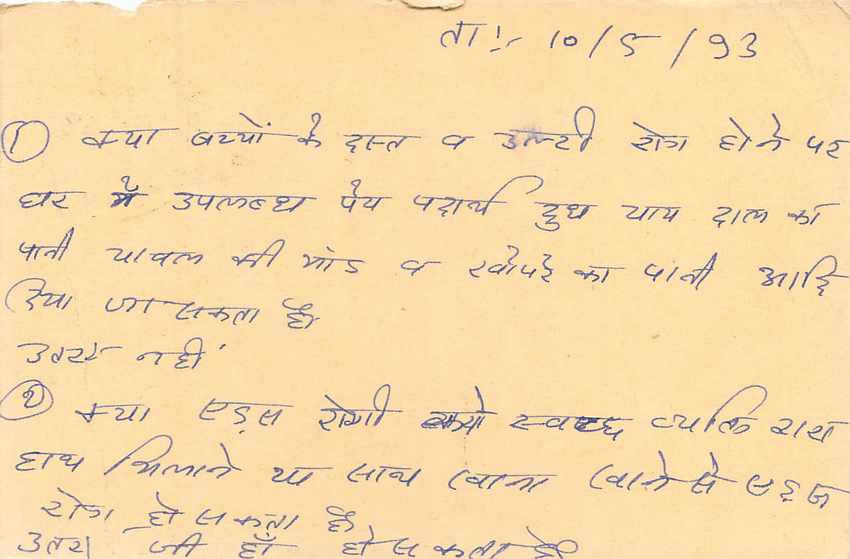 ता:- 10/5/93
① क्या बच्चों के दस्त व उल्टी रोग होने पर
घर में उपलब्ध पेय पदार्थ दुध चाय दाल का
पानी चावल की मांड व खोपरे का पानी आदि
दिया जा सकता है।
उतर नहीं
② क्या एड्स रोगी को स्वस्थ व्यक्ति द्वारा
हाथ मिलाने या साथ खाना खाने से एड्ज
रोग हो सकता है
उतर जी हाँ हो सकता है